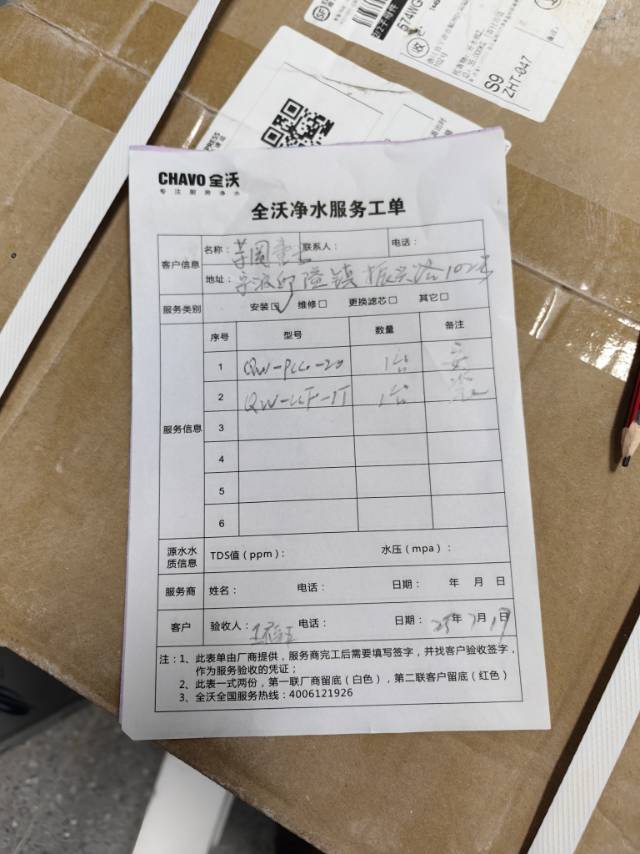 574WG
S9
ZHT-047
CHAVO 全沃
专注厨房净水
全沃净水服务工单
客户信息
名称：
联系人：
电话：
地址：
镇振兴路102号
服务类别
安装☑ 维修□ 更换滤芯□ 其它□
服务信息
序号 型号 数量 备注
1 1台 安
2 QW-UF-1T 1台 装
3
4
5
6
源水水质信息
TDS值（ppm）：
水压（mpa）：
服务商
姓名： 电话： 日期： 年 月 日
客户
验收人： 电话： 日期：25年7月19日
注：1、此表单由厂商提供，服务商完工后需要填写签字，并找客户验收签字，
作为服务验收的凭证；
2、此表一式两份，第一联厂商留底（白色），第二联客户留底（红色）
3、全沃全国服务热线：4006121926